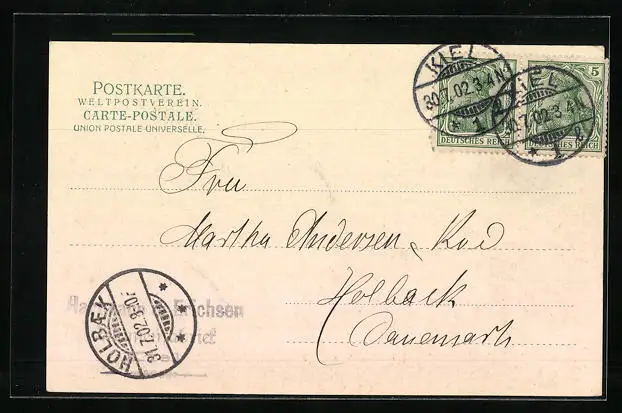 POSTKARTE.
WELTPOSTVEREIN.
CARTE-POSTALE.
UNION POSTALE UNIVERSELLE.
KIEL
30.7.02.3-4N.
* 1 l
DEUTSCHES REICH
5
DEUTSCHES REICH
Fru
Martha Andersen
Holbaek
Danemark
HOLBÆK
31.7.02
Erichsen